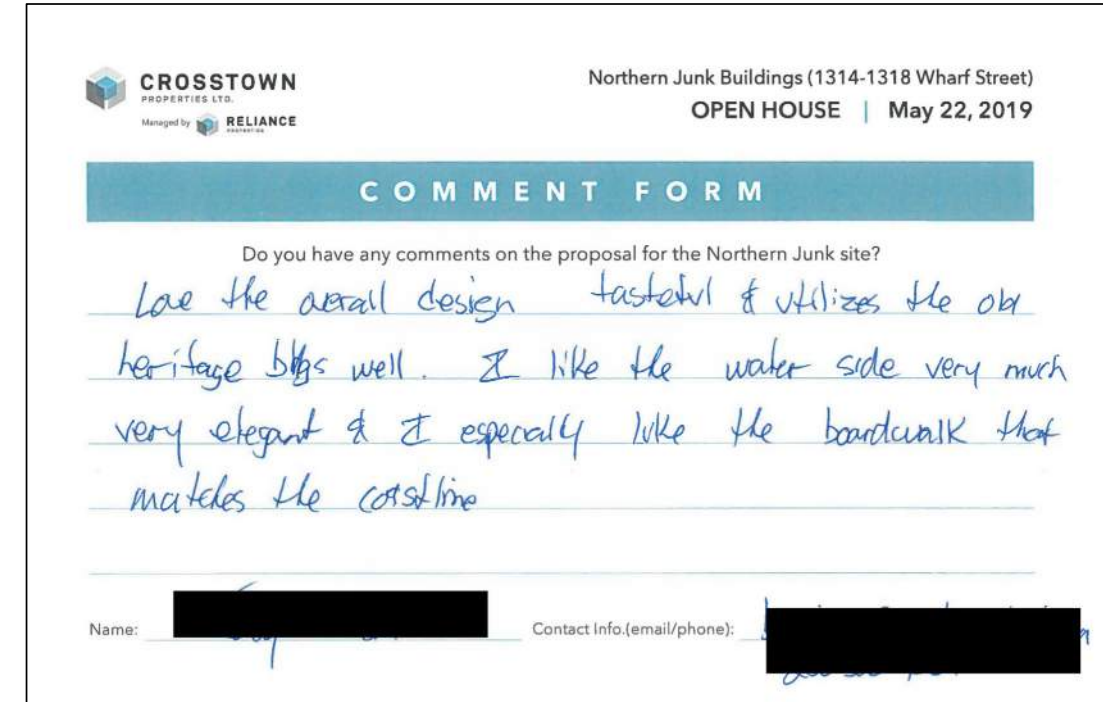 CROSSTOWN
PROPERTIES LTD.
Managed by RELIANCE
PROPERTIES
Northern Junk Buildings (1314-1318 Wharf Street)
OPEN HOUSE | May 22, 2019
COMMENT FORM
Do you have any comments on the proposal for the Northern Junk site?
Love the overall design tasteful & utilizes the old
heritage bldgs well. I like the water side very much
very elegant & I especially like the boardwalk that
matches the coastline
Name:
Contact Info.(email/phone):